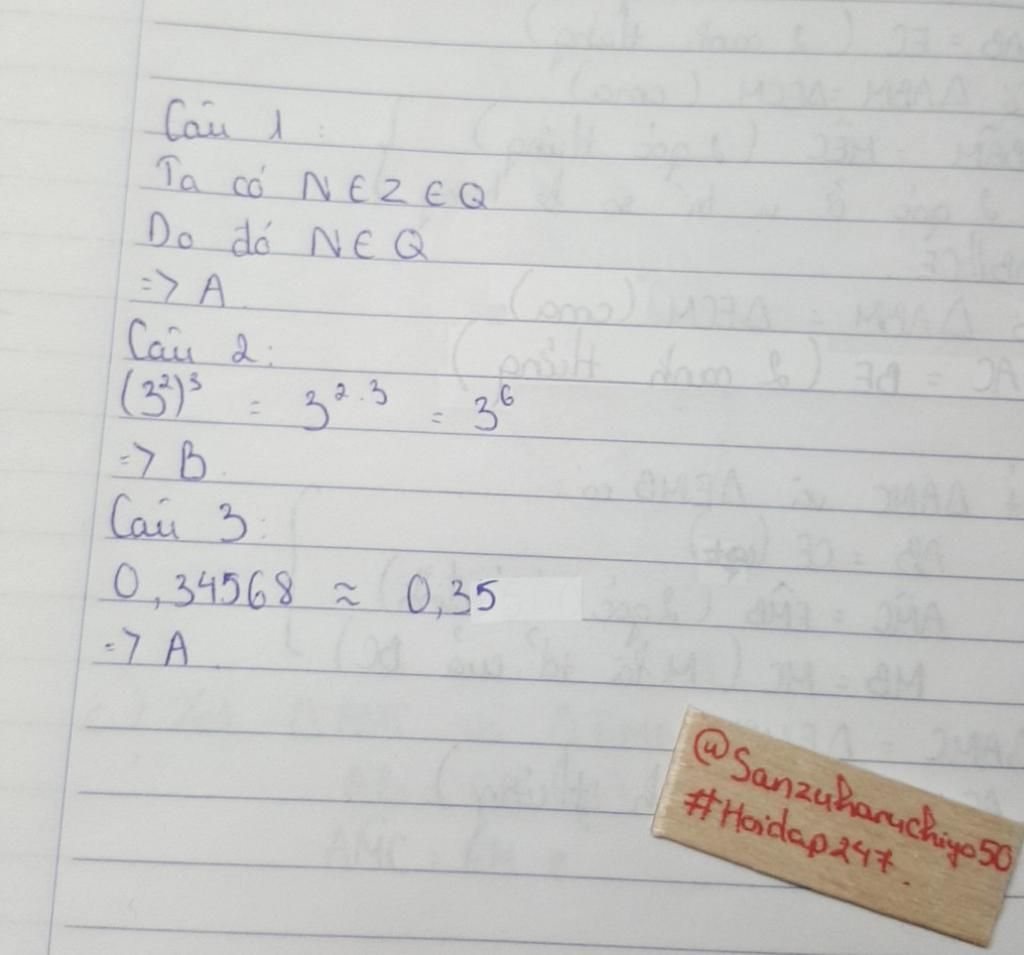 Câu 1:
Ta có N ∈ Z ∈ Q
Do đó N ∈ Q
=> A
Câu 2:
(3²)³ = 3²·³ = 3⁶
=> B.
Câu 3:
0,34568 ≈ 0,35
=> A
@Sanzuharuchiyo50
#Hoidap247.